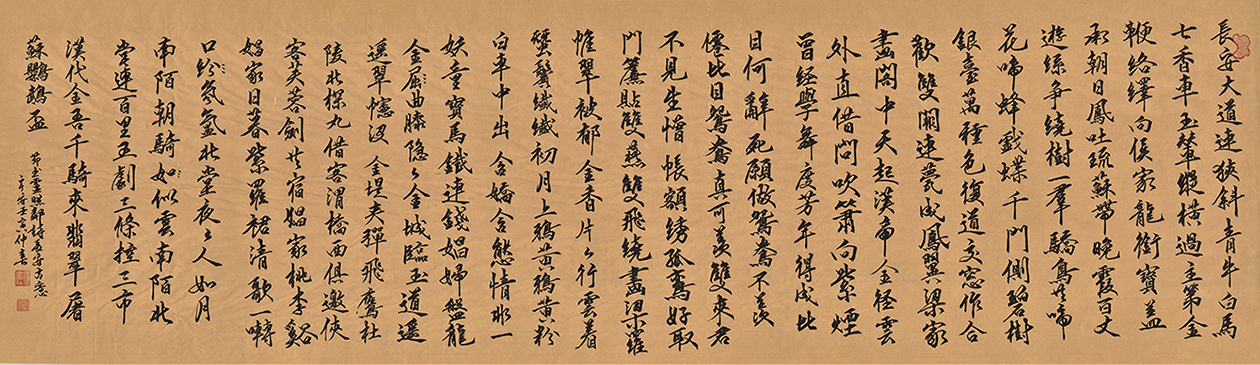 長安大道連狹斜青牛白馬
七香車玉輦縱橫過主第金
鞭絡繹向侯家龍銜寶蓋
承朝日鳳吐琉蘇帶晚霞百丈
遊絲爭繞樹一群驕鳥共啼
花啼蜂戲蝶千門側碧樹
銀臺萬種色復道交窓作合
歡雙闕連甍成鳳翼梁家
畫閣中天起漢帝金徑雲
外直借問吹簫向紫煙
曾經學舞度芳年得成比
目何辭死願做鴛鴦不羨
僊比目鴛鴦真可羨雙來君
不見生憎帳額绣孤鸞好取
門簾貼雙燕雙飛繞畫梁羅
帷翠被郁金香片〻行雲着
蟬鬢纖纖初月上鴉黃鴉黃粉
白車中出含嬌含態情非一
妖童寶馬鐵連錢娼婦盤龍
金屈曲膝隐〻金城臨玉道遥
遥翠幰没金堤夹彈飛鷹杜
陵北探丸借客渭橋西俱邀俠
客芙蓉劍共宿娼家桃李蹊
娼家日暮紫羅裙清歌一囀
口紛氛氲北堂夜〻人如月
南陌朝騎如似雲南陌北
堂連百里五劇三條控三市
漢代金吾千騎來翡翠屠
蘇鸚鵡盃
节书盧照鄰詩長安古意
壬寅仲春